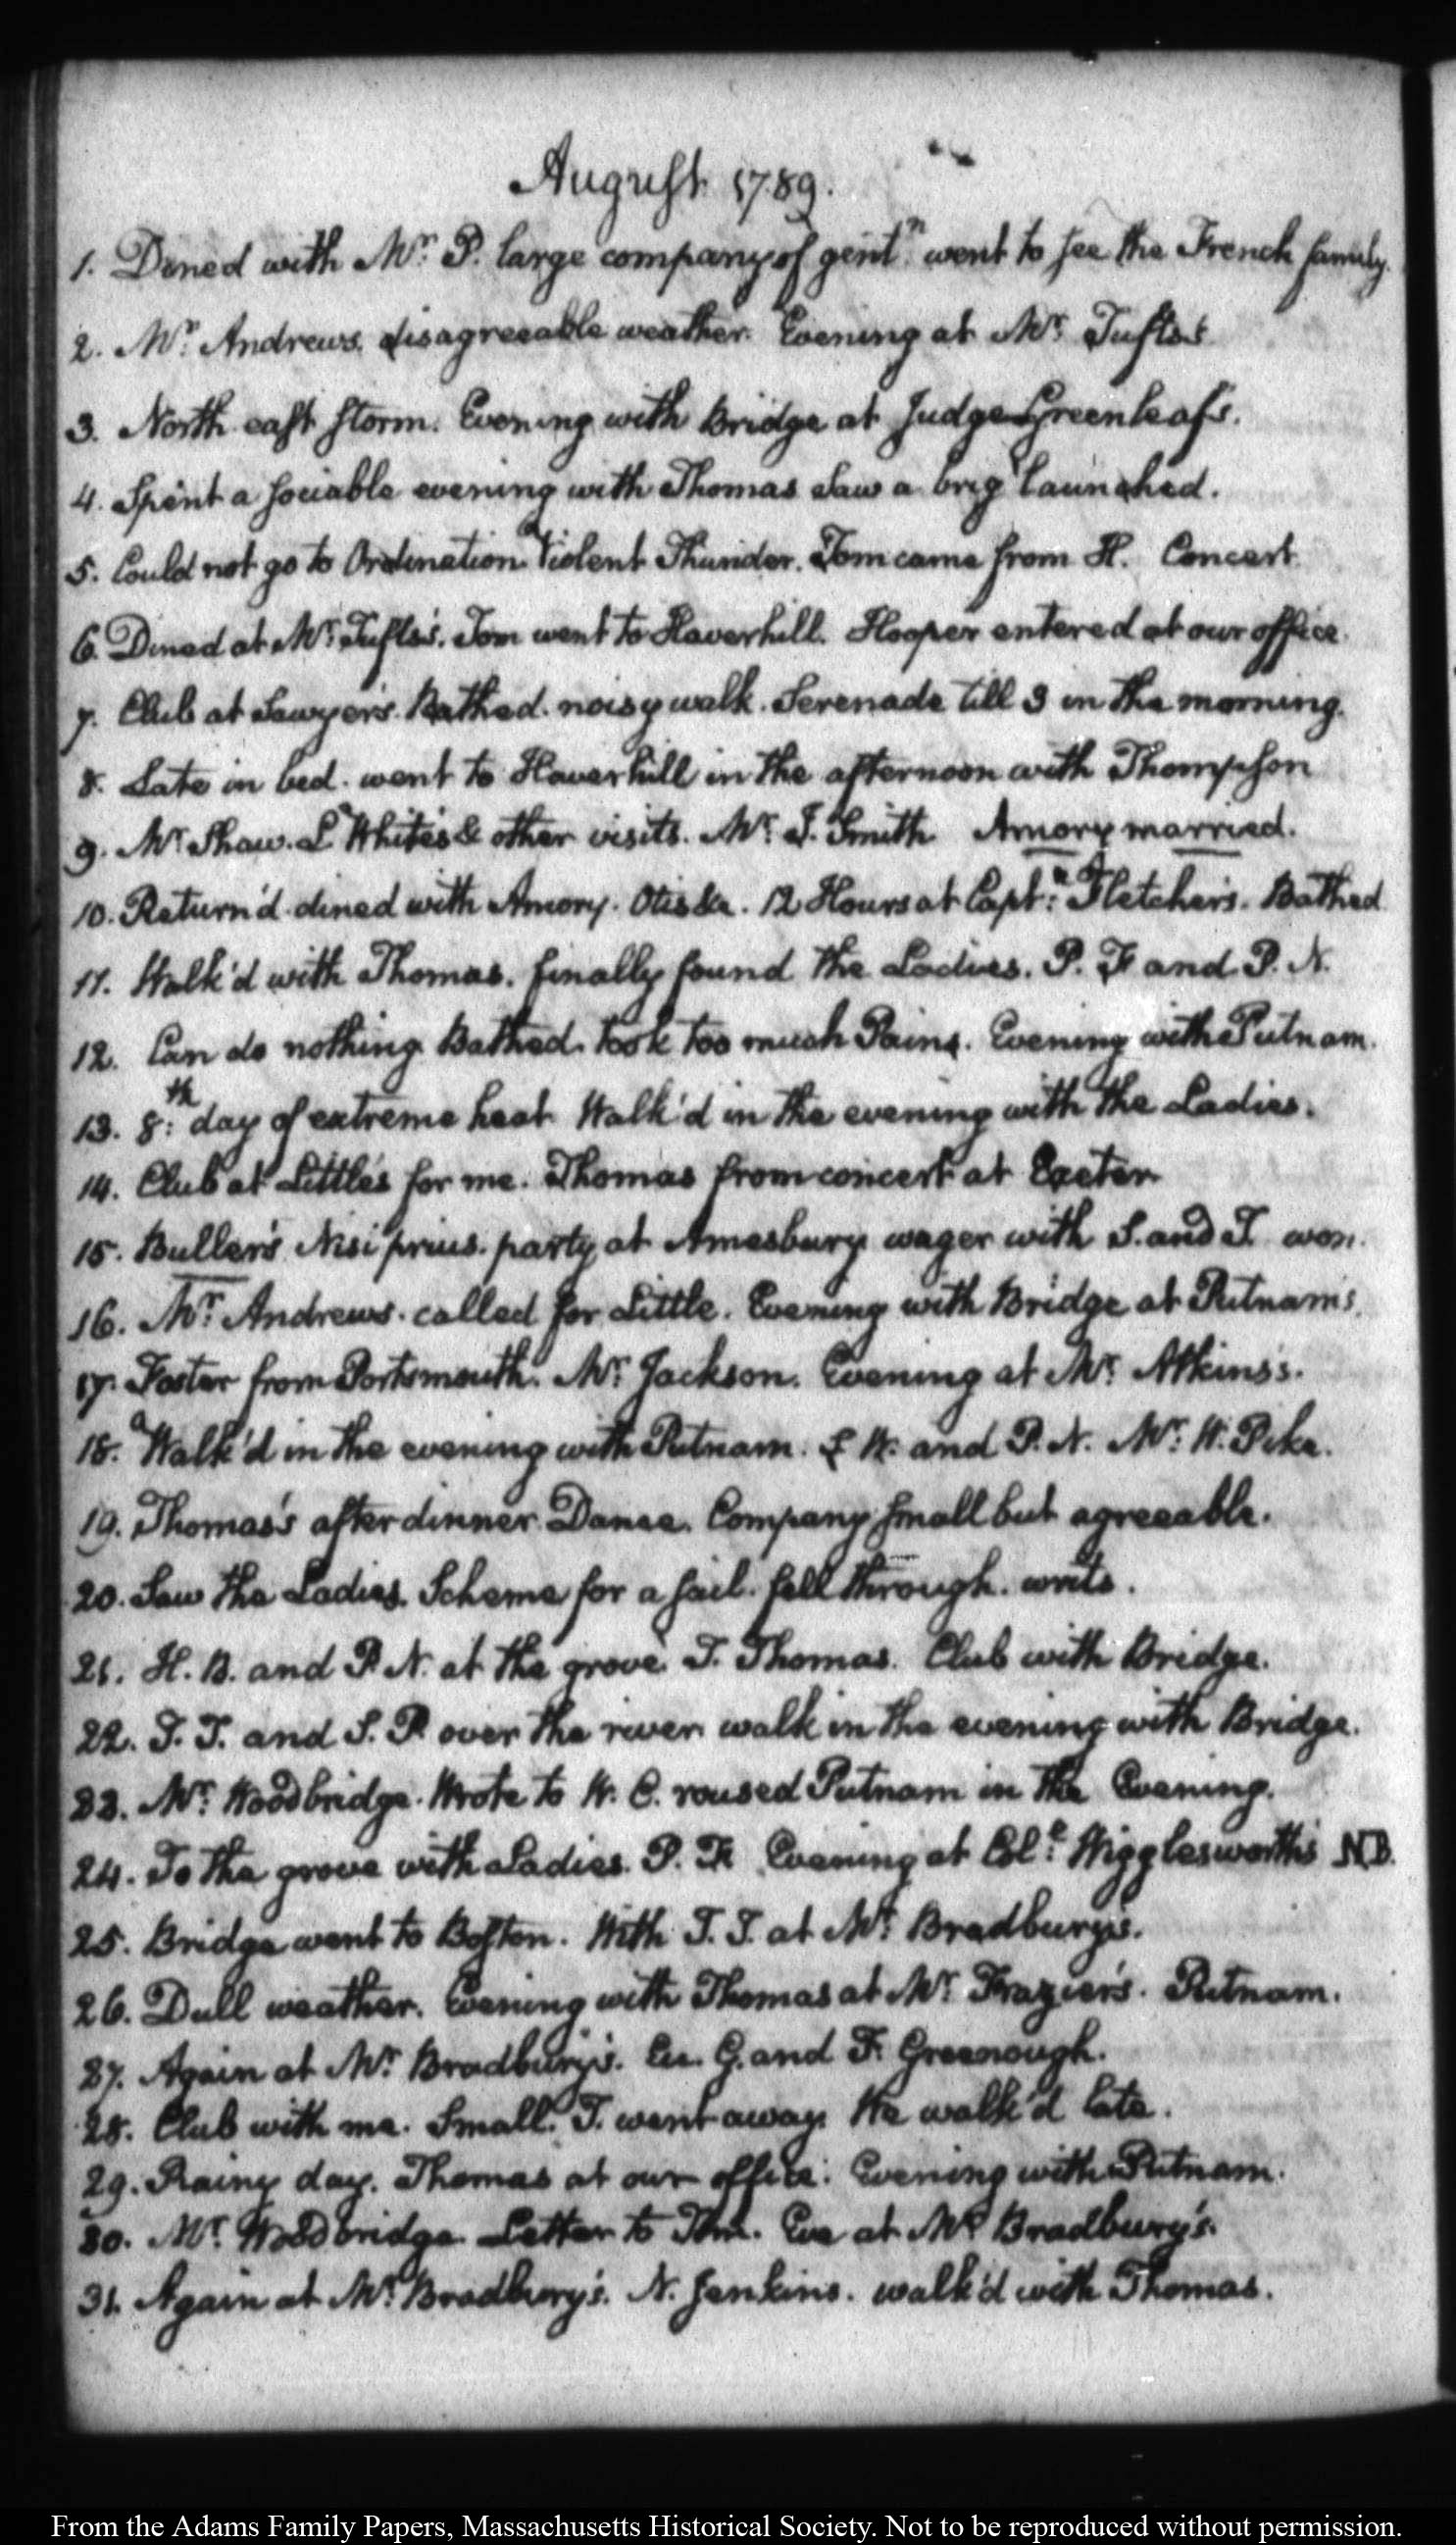 August 1789.
1. Dined with Mr. P. large company of gentn. went to see the French family.
2. Mr. Andrews. disagreeable weather. Evening at Mr. Tufts's
3. North east storm. Evening with Bridge at Judge Greenleaf's.
4. Spent a sociable evening with Thomas saw a brig launched.
5. Could not go to Ordination. Violent Thunder. Tom came from H. Concert
6. Dined at Mr. Tufts's. Tom went to Haverhill. Hooper entered at our office.
7. Club at Sawyer's. Bathed. noisy walk. Serenade till 3 in the morning.
8. Late in bed. went to Haverhill in the afternoon with Thompson
9. Mr. Shaw. L. White's & other visits. Mr. J. Smith. Amory married.
10. Return'd. dined with Amory. Otis &c. 12 Hours at Captn. Fletcher's. Bathed
11. Walk'd with Thomas. finally found the Ladies. P. F. and P. N.
12. Can do nothing. Bathed. took too much Pains. Evening with Putnam.
13. 8th. day of extreme heat. Walk'd in the evening with the Ladies.
14. Club at Little's for me. Thomas from concert at Exeter
15. Buller's Nisi prius. party at Amesbury. wager with S. and T. won.
16. Mr. Andrews. called for Little. Evening with Bridge at Putnam's.
17. Foster from Portsmouth. Mr. Jackson. Evening at Mr. Atkins's.
18. Walk'd in the evening with Putnam. W. and P. N. Mr. W. Pike.
19. Thomas's after dinner. Dance. Company small but agreeable.
20. Saw the Ladies. Scheme for a sail. fell through. writs.
21. H. B. and P. N. at the grove. J. Thomas. Club with Bridge.
22. J. T. and S. P. over the river. walk in the evening with Bridge.
23. Mr. Woodbridge. Wrote to W. C. roused Putnam in the Evening.
24. To the grove with Ladies. P. F. Evening at Coll. Wigglesworth's N.B.
25. Bridge went to Boston. With J. T. at Mr. Bradbury's.
26. Dull weather. Evening with Thomas at Mr. Frazier's. Putnam.
27. Again at Mr. Bradbury's. G. and F. Greenough.
28. Club with me. Small. T. went away. We walk'd late.
29. Rainy day. Thomas at our office. Evening with Putnam.
30. Mr. Woodbridge. Letter to Eve at Mr. Bradbury's.
31. Again at Mr. Bradbury's. N. Jenkins. walk'd with Thomas.
From the Adams Family Papers, Massachusetts Historical Society. Not to be reproduced without permission.